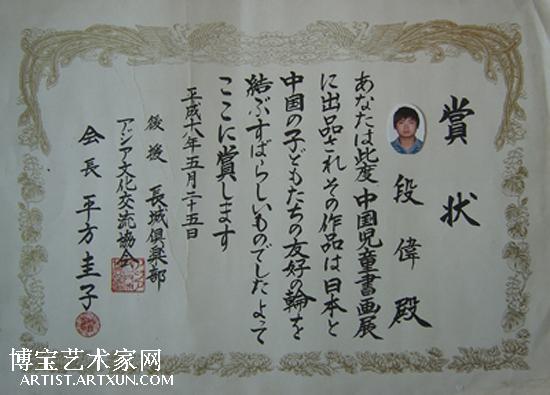 賞状
段偉殿
あなたは此度「中国児童書画展
に出品されその作品は日本と
中国の子どもたちの友好の輪を
結ぶすばらしいものでしたよって
ここに賞します
平成十八年五月二十五日
後援 長城倶楽部
アジア文化交流協会
会長 平方圭子
博宝艺术家网
ARTIST.ARTXUN.COM